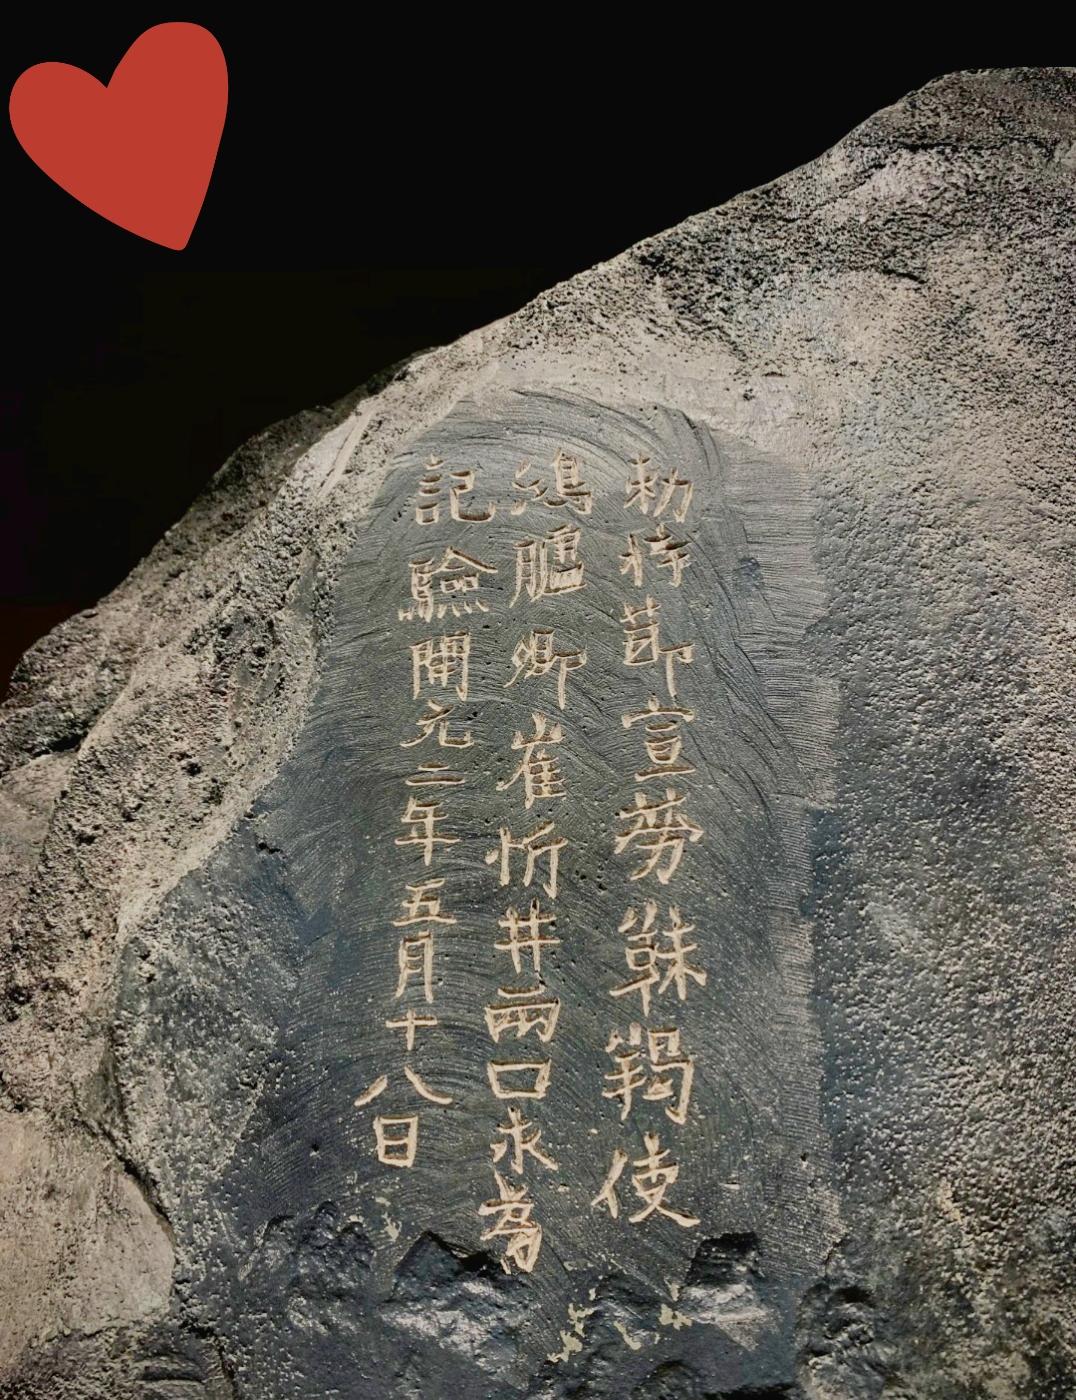 勅持節宣勞靺羯使
鴻臚卿崔忻井兩口永為
記驗開元二年五月十八日